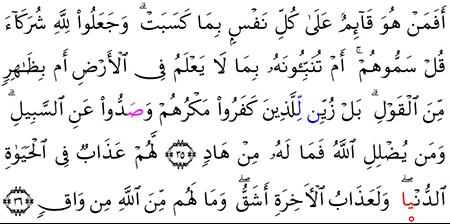 أَفَمَنْ هُوَ قَآئِمٌ عَلَىٰ كُلِّ نَفْسٍۭ بِمَا كَسَبَتْ ۗ وَجَعَلُوا۟ لِلَّهِ شُرَكَآءَ
قُلْ سَمُّوهُمْ ۚ أَمْ تُنَبِّـُٔونَهُۥ بِمَا لَا يَعْلَمُ فِى ٱلْأَرْضِ أَم بِظَـٰهِرٍ
مِّنَ ٱلْقَوْلِ ۗ بَلْ زُيِّن لِّلَّذِينَ كَفَرُوا۟ مَكْرُهُمْ وَصَدُّوا۟ عَنِ ٱلسَّبِيلِ ۗ
وَمَن يُضْلِلِ ٱللَّهُ فَمَا لَهُۥ مِنْ هَادٍ ۝٣٥ لَّهُمْ عَذَابٌ فِى ٱلْحَيَوٰةِ
ٱلدُّنْيَا ۖ وَلَعَذَابُ ٱلْأَخِرَةِ أَشَقُّ ۖ وَمَا لَهُم مِّنَ ٱللَّهِ مِن وَاقٍ ۝٣٦